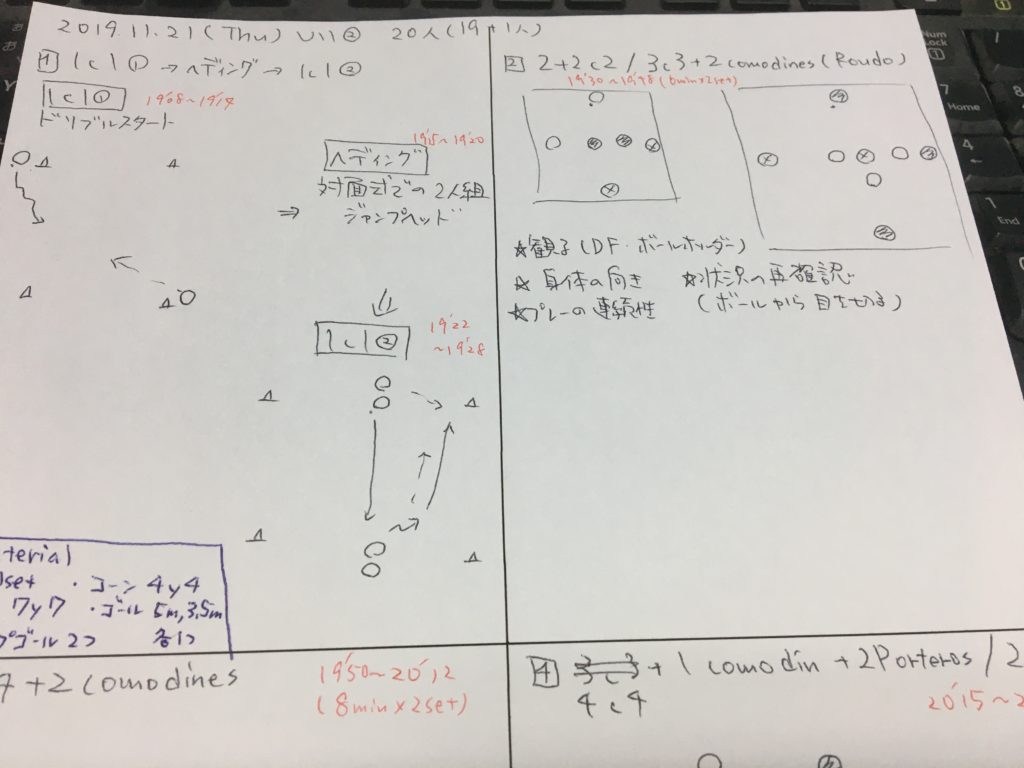 2019.11.21(Thu) U11② 20人(19+1人)
1 1c1① → ヘディング → 1c1②
1c1① 19'08~19'14
ドリブルスタート
19'15~19'20
ヘディング
⇒ 対面式での2人組
ジャンプヘッド
1c1② 19'22
~19'28
terial
set ・コーン 4y4
7y7 ・ゴール 5m,3.5m
プゴール2つ 各1つ
2 2+2c2/3c3+2comodines(Roudo)
19'30~19'48(6min×2set)
☆観る(DF・ボールホルダー)
☆身体の向き ☆状況の再確認
☆プレーの連続性 (ボールから目をきる)
7+2comodines 19'50~20'12
(8min×2set)
4 3c3+1comodin+2Porteros/2
4c4 20'15~2
Num
Lock
7
Home
8
4
←
1
End